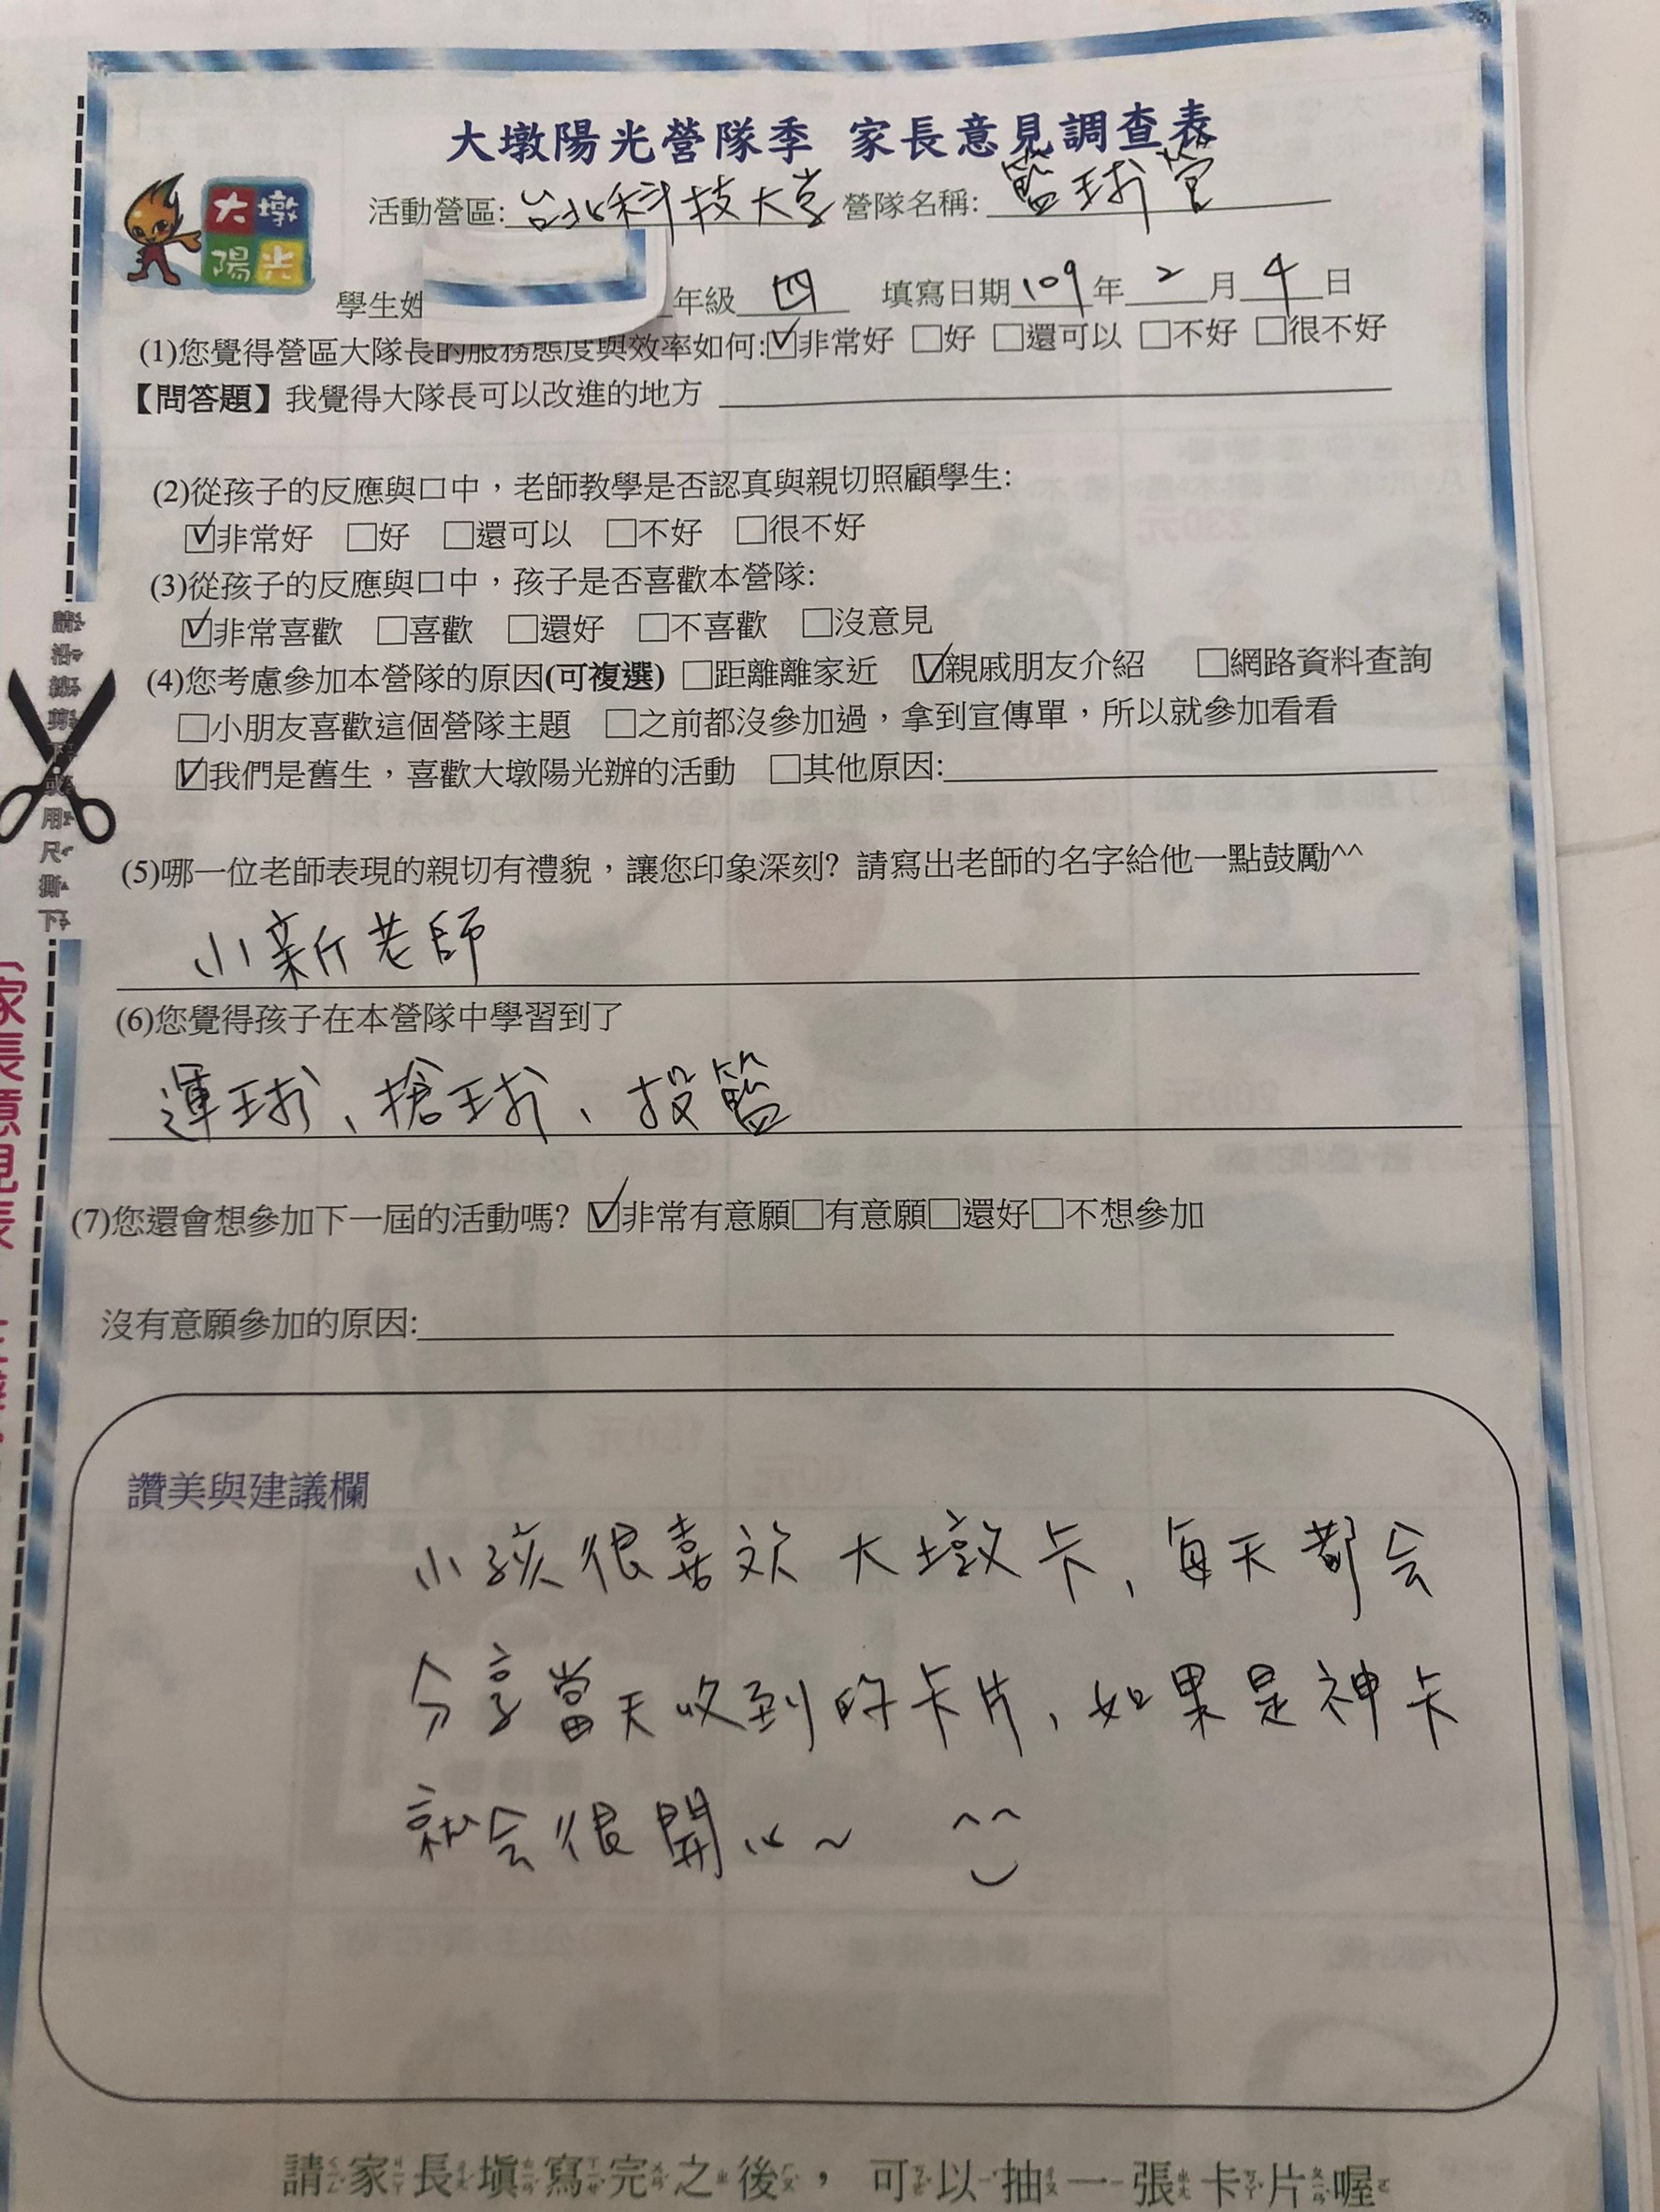 大墩陽光營隊季 家長意見調查表
大墩
陽光
活動營區:台北科技大学 營隊名稱: 籃球营
學生姓 年級 四 填寫日期 109 年 2 月 4 日
(1)您覺得營區大隊長的服務態度與效率如何:☑非常好 □好 □還可以 □不好 □很不好
【問答題】我覺得大隊長可以改進的地方
(2)從孩子的反應與口中，老師教學是否認真與親切照顧學生:
☑非常好 □好 □還可以 □不好 □很不好
(3)從孩子的反應與口中，孩子是否喜歡本營隊:
☑非常喜歡 □喜歡 □還好 □不喜歡 □沒意見
(4)您考慮參加本營隊的原因(可複選) □距離離家近 ☑親戚朋友介紹 □網路資料查詢
□小朋友喜歡這個營隊主題 □之前都沒參加過，拿到宣傳單，所以就參加看看
☑我們是舊生，喜歡大墩陽光辦的活動 □其他原因:
(5)哪一位老師表現的親切有禮貌，讓您印象深刻? 請寫出老師的名字給他一點鼓勵^^
小新老師
(6)您覺得孩子在本營隊中學習到了
運球、搶球、投籃
(7)您還會想參加下一屆的活動嗎? ☑非常有意願□有意願□還好□不想參加
沒有意願參加的原因:
讚美與建議欄
小孩很喜欢大墩卡，每天都会
分享當天收到的卡片，如果是神卡
就会很開心~ ^^
請家長填寫完之後，可以抽一張卡片喔
請沿線剪下或用尺撕下
家長意見表